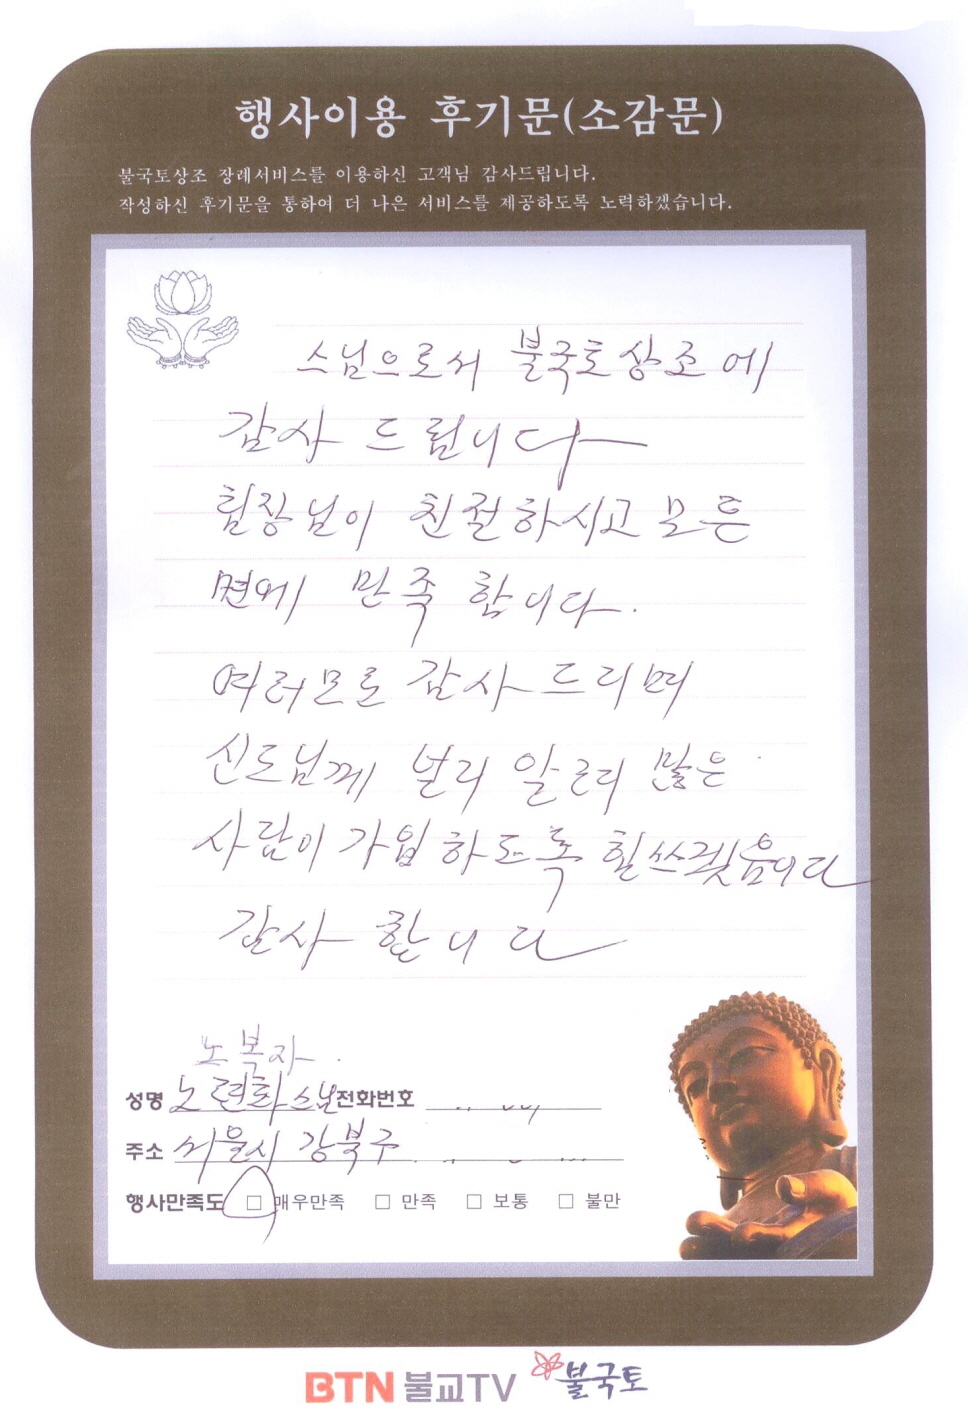 행사이용 후기문(소감문)
불국토상조 장례서비스를 이용하신 고객님 감사드립니다.
작성하신 후기문을 통하여 더 나은 서비스를 제공하도록 노력하겠습니다.
스님으로서 불국토상조에
감사 드립니다
팀장님이 친절하시고 모든
면에 만족 합니다.
여러모로 감사 드리며
신도님께 널리 알려 많은
사람이 가입하도록 힐쓰겟읍니다
감사 합니다
노복자
성명 노련화스님 전화번호
주소 서울시 강북구
행사만족도 □ 매우만족 □ 만족 □ 보통 □ 불만
BTN 불교TV 불국토